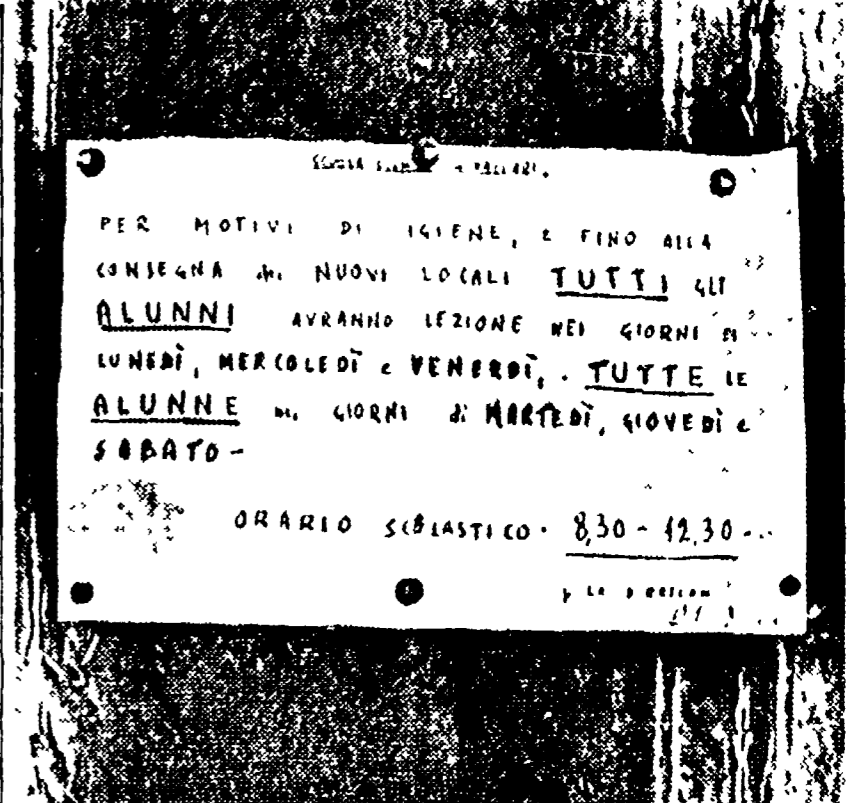 SCUOLA
PER MOTIVI DI IGIENE, E FINO ALLA
CONSEGNA dei NUOVI LOCALI TUTTI GLI
ALUNNI AVRANNO LEZIONE NEI GIORNI di
LUNEDÌ, MERCOLEDÌ e VENERDÌ, . TUTTE LE
ALUNNE nei GIORNI di MARTEDÌ, GIOVEDÌ e
SABATO -
ORARIO SCOLASTICO . 8,30 - 12,30 -
p. LA DIREZIONE